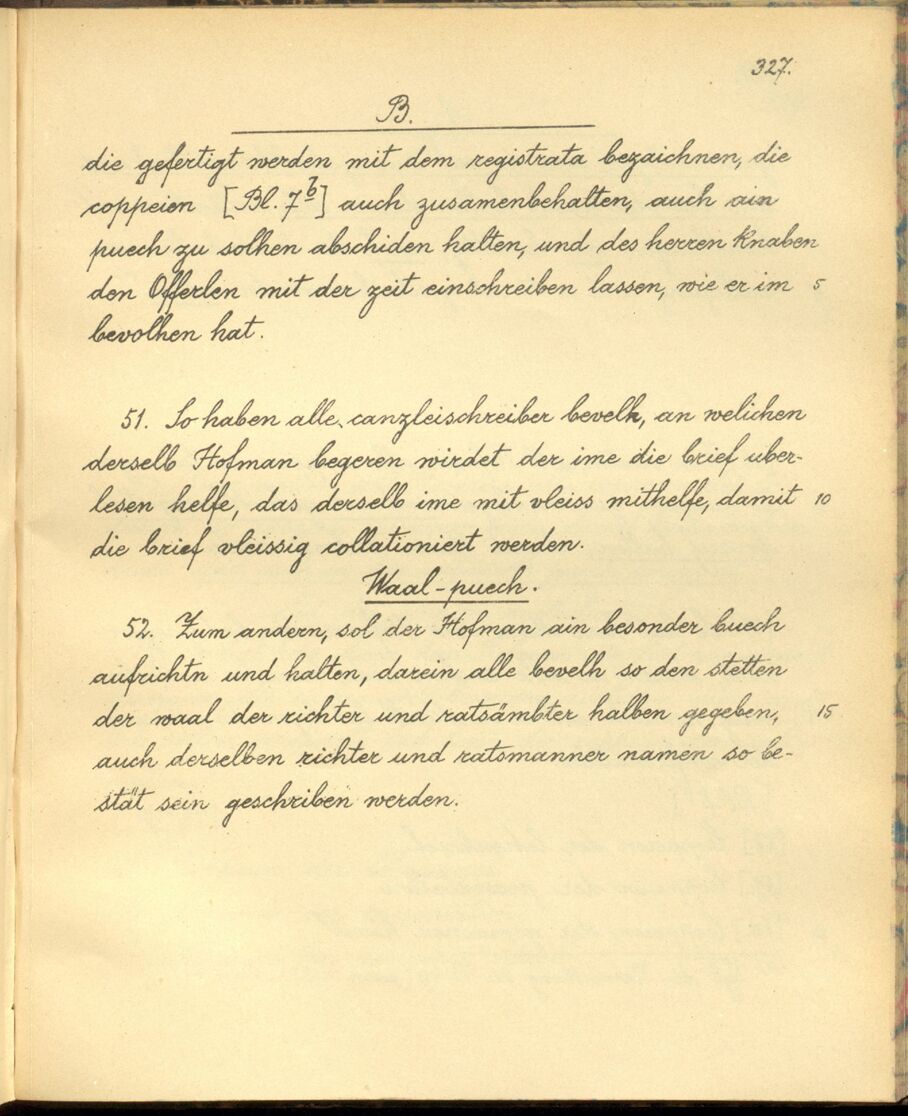 327.
B.
die gefertigt werden mit dem registrata bezaichnen, die
coppeien [Bl. 7b] auch zusamenbehalten, auch ain
puech zu solhen abschiden halten, und des herren Knaben
den Offerlen mit der zeit einschreiben lassen, wie er im 5
bevolhen hat.
51. So haben alle canzleischreiber bevelh, an welichen
derselb Hofman begeren wirdet der ime die brief uber-
lesen helfe, das derselb ime mit vleiss mithelfe, damit 10
die brief vleissig collationiert werden.
Waal-puech.
52. Zum andern, sol der Hofman ain besonder buech
aufrichtn und halten, darein alle bevelh so den stetten
der waal der richter und ratsämbter halben gegeben, 15
auch derselben richter und ratsmanner namen so be-
stät sein geschriben werden.